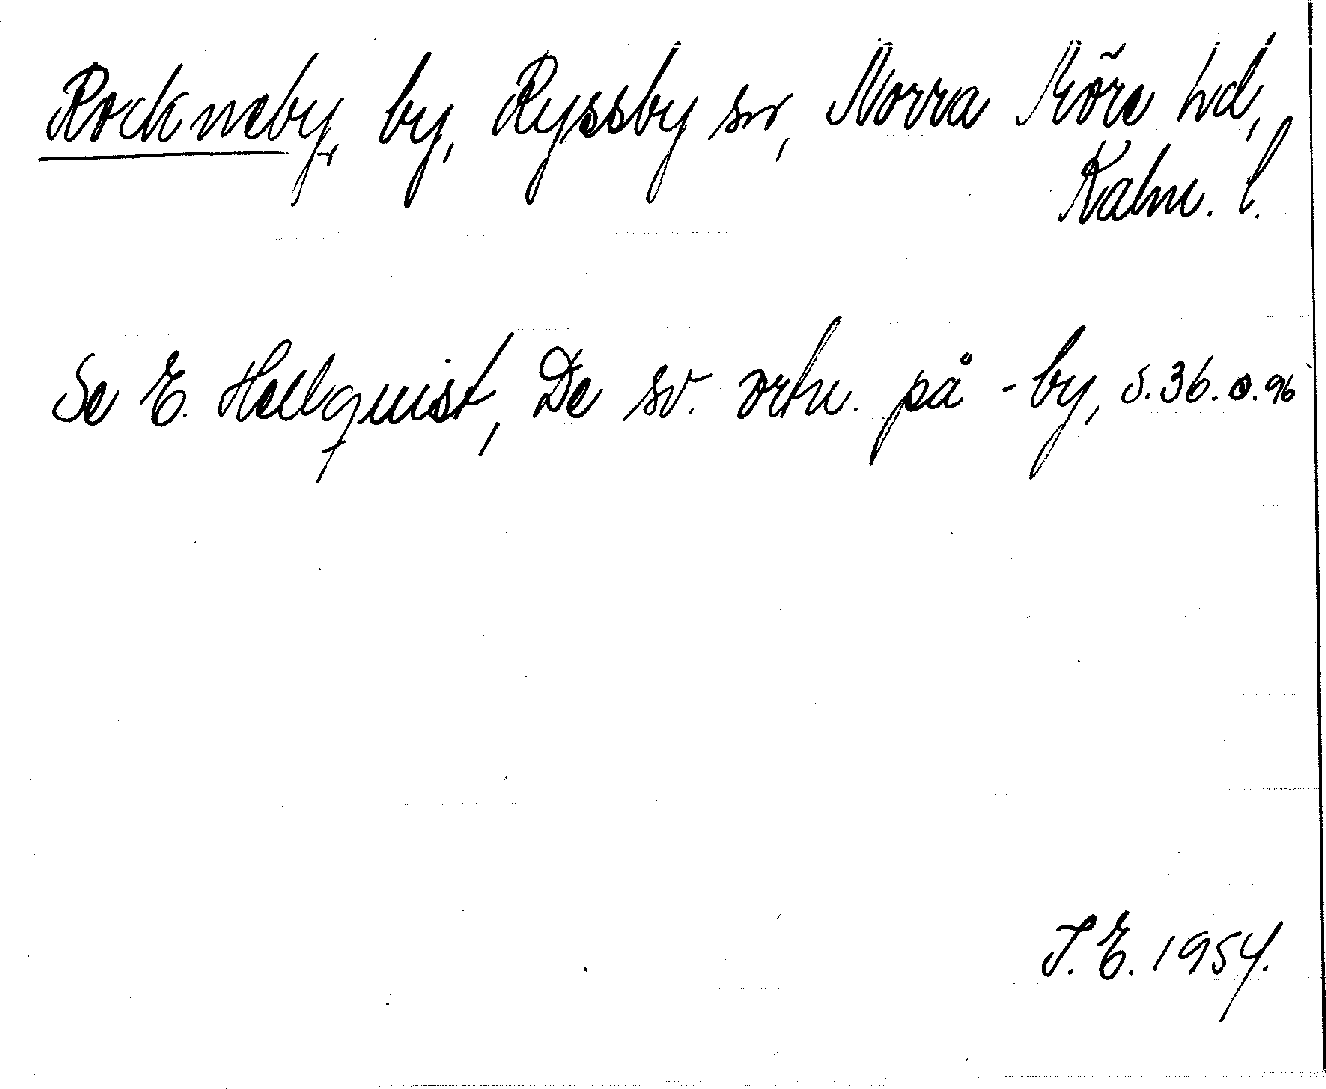 Rockneby, by, Ryssby sn, Norra Möre hd,
Kalm. l.
Se E. Hellquist, De sv. ortn. på -by, s. 36. o. 96
I. E. 1954.